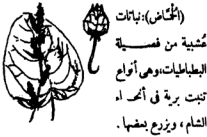 (الحُمّاض): نباتات
عُشبية من فصيلة
البطباطيات، وهي أنواع
تنبت برية في أنحاء
الشام، ويزرع بعضها.